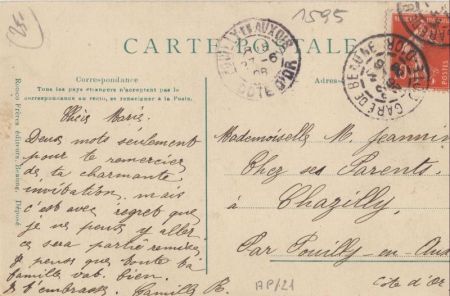 1595
CARTE POSTALE
Correspondance
Tous les pays étrangers n'acceptent pas la
correspondance au recto, se renseigner à la Poste.
Adresse
Chère Marie.
Deux mots seulement
pour te remercier
de ta charmante
invitation, mais
c'est avec regret que
je ne peux y aller
ce sera partie remise.
Je pense que toute ta
famille va bien.
Je t'embrasse. Camille R.
Mademoiselle M. Jeannin
Chez ses Parents.
à Chazilly.
Par Pouilly-en-Aux
Côte d'Or
AP/21
GARE DE BEAUNE
CÔTE D'OR
POSTES
Ronco Frères éditeurs, Beaune. Déposé